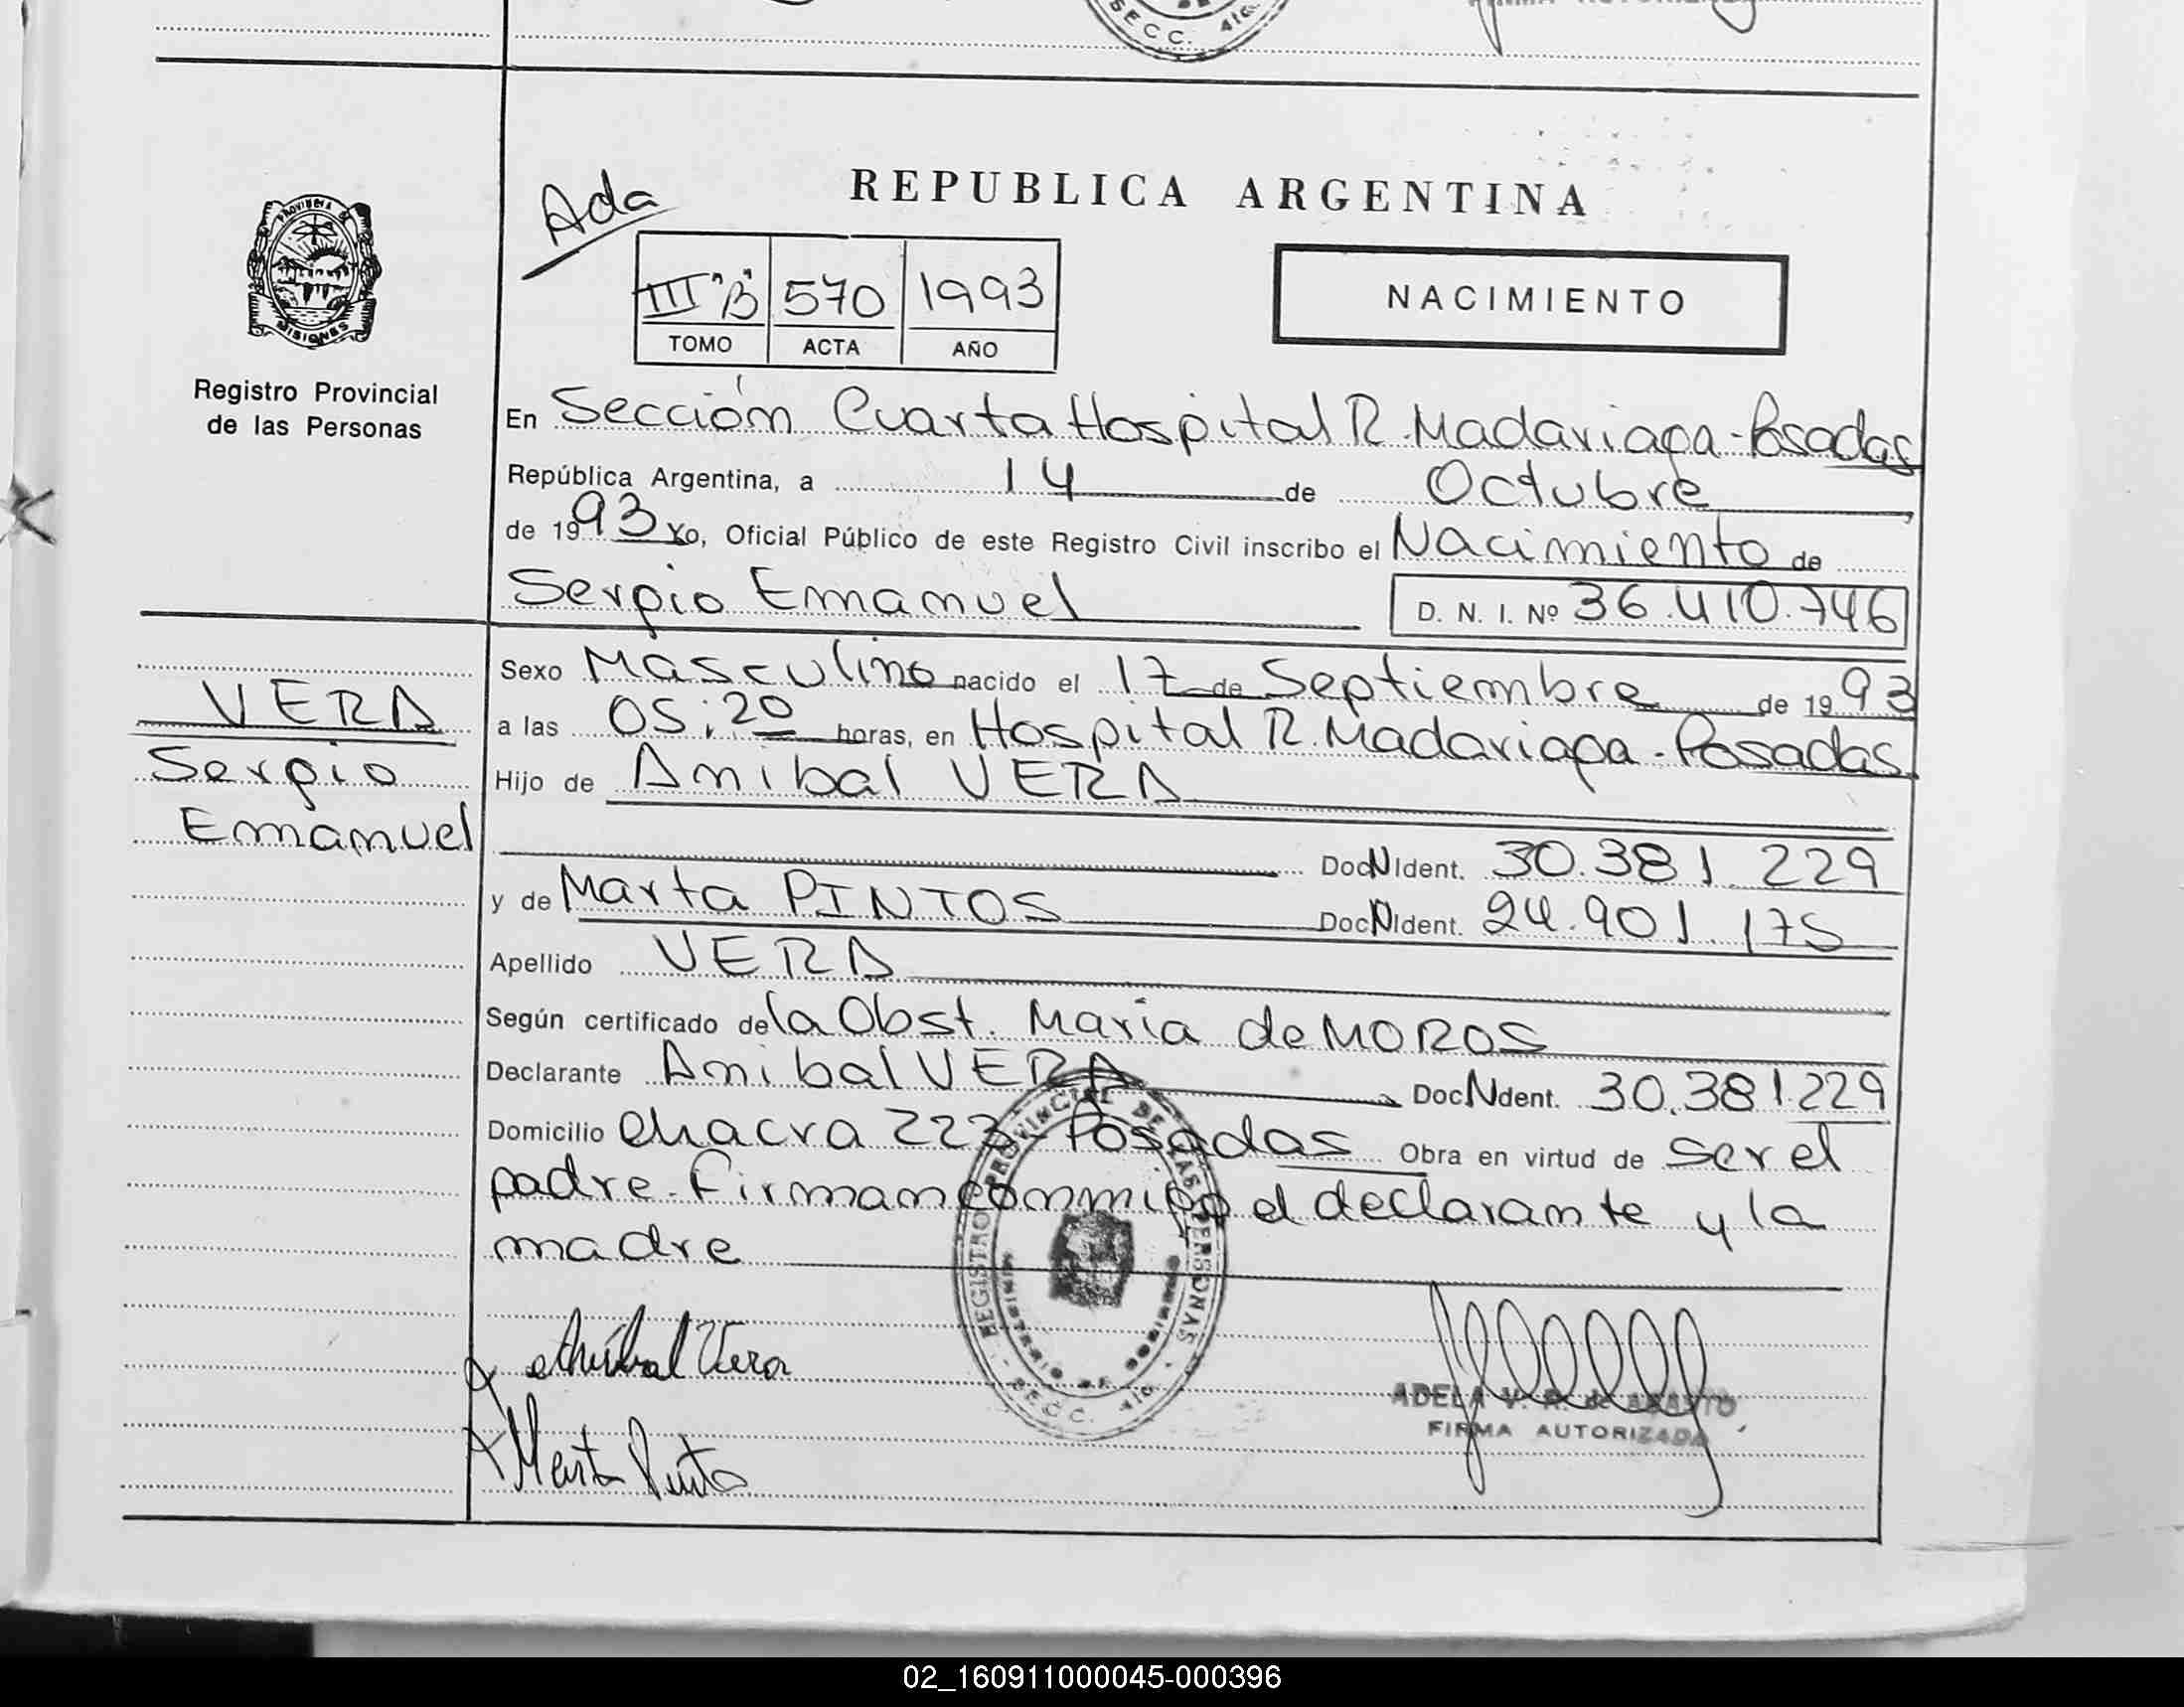 SECC. 4ta.
Ada
REPUBLICA ARGENTINA
PROVINCIA DE
MISIONES
III "B" 570 1993
TOMO ACTA AÑO
NACIMIENTO
Registro Provincial
de las Personas
En Sección Cuarta Hospital R. Madariaga - Posadas
República Argentina, a 14 de Octubre
de 1993 Yo, Oficial Público de este Registro Civil inscribo el Nacimiento de
Sergio Emanuel D. N. I. Nº 36.410.746
Sexo Masculino nacido el 17 de Septiembre de 1993
VERA
a las 05:20 horas, en Hospital R. Madariaga - Posadas
Sergio
Hijo de Anibal VERA
Emanuel
DocNIdent. 30.381.229
y de Marta PINTOS DocNIdent. 24.901.175
Apellido VERA
Según certificado de la Obst. Maria de MOROS
Declarante Anibal VERA DocNdent. 30.381.229
Domicilio Chacra 223 - Posadas Obra en virtud de ser el
padre. Firman conmigo el declarante y la
madre
REGISTRO PROVINCIAL DE LAS PERSONAS
MINISTERIO DE GOBIERNO
SECC. 4ta.
Anibal Vera
ADELA V. R. de
FIRMA AUTORIZADA
Marta Pinto
02_160911000045-000396